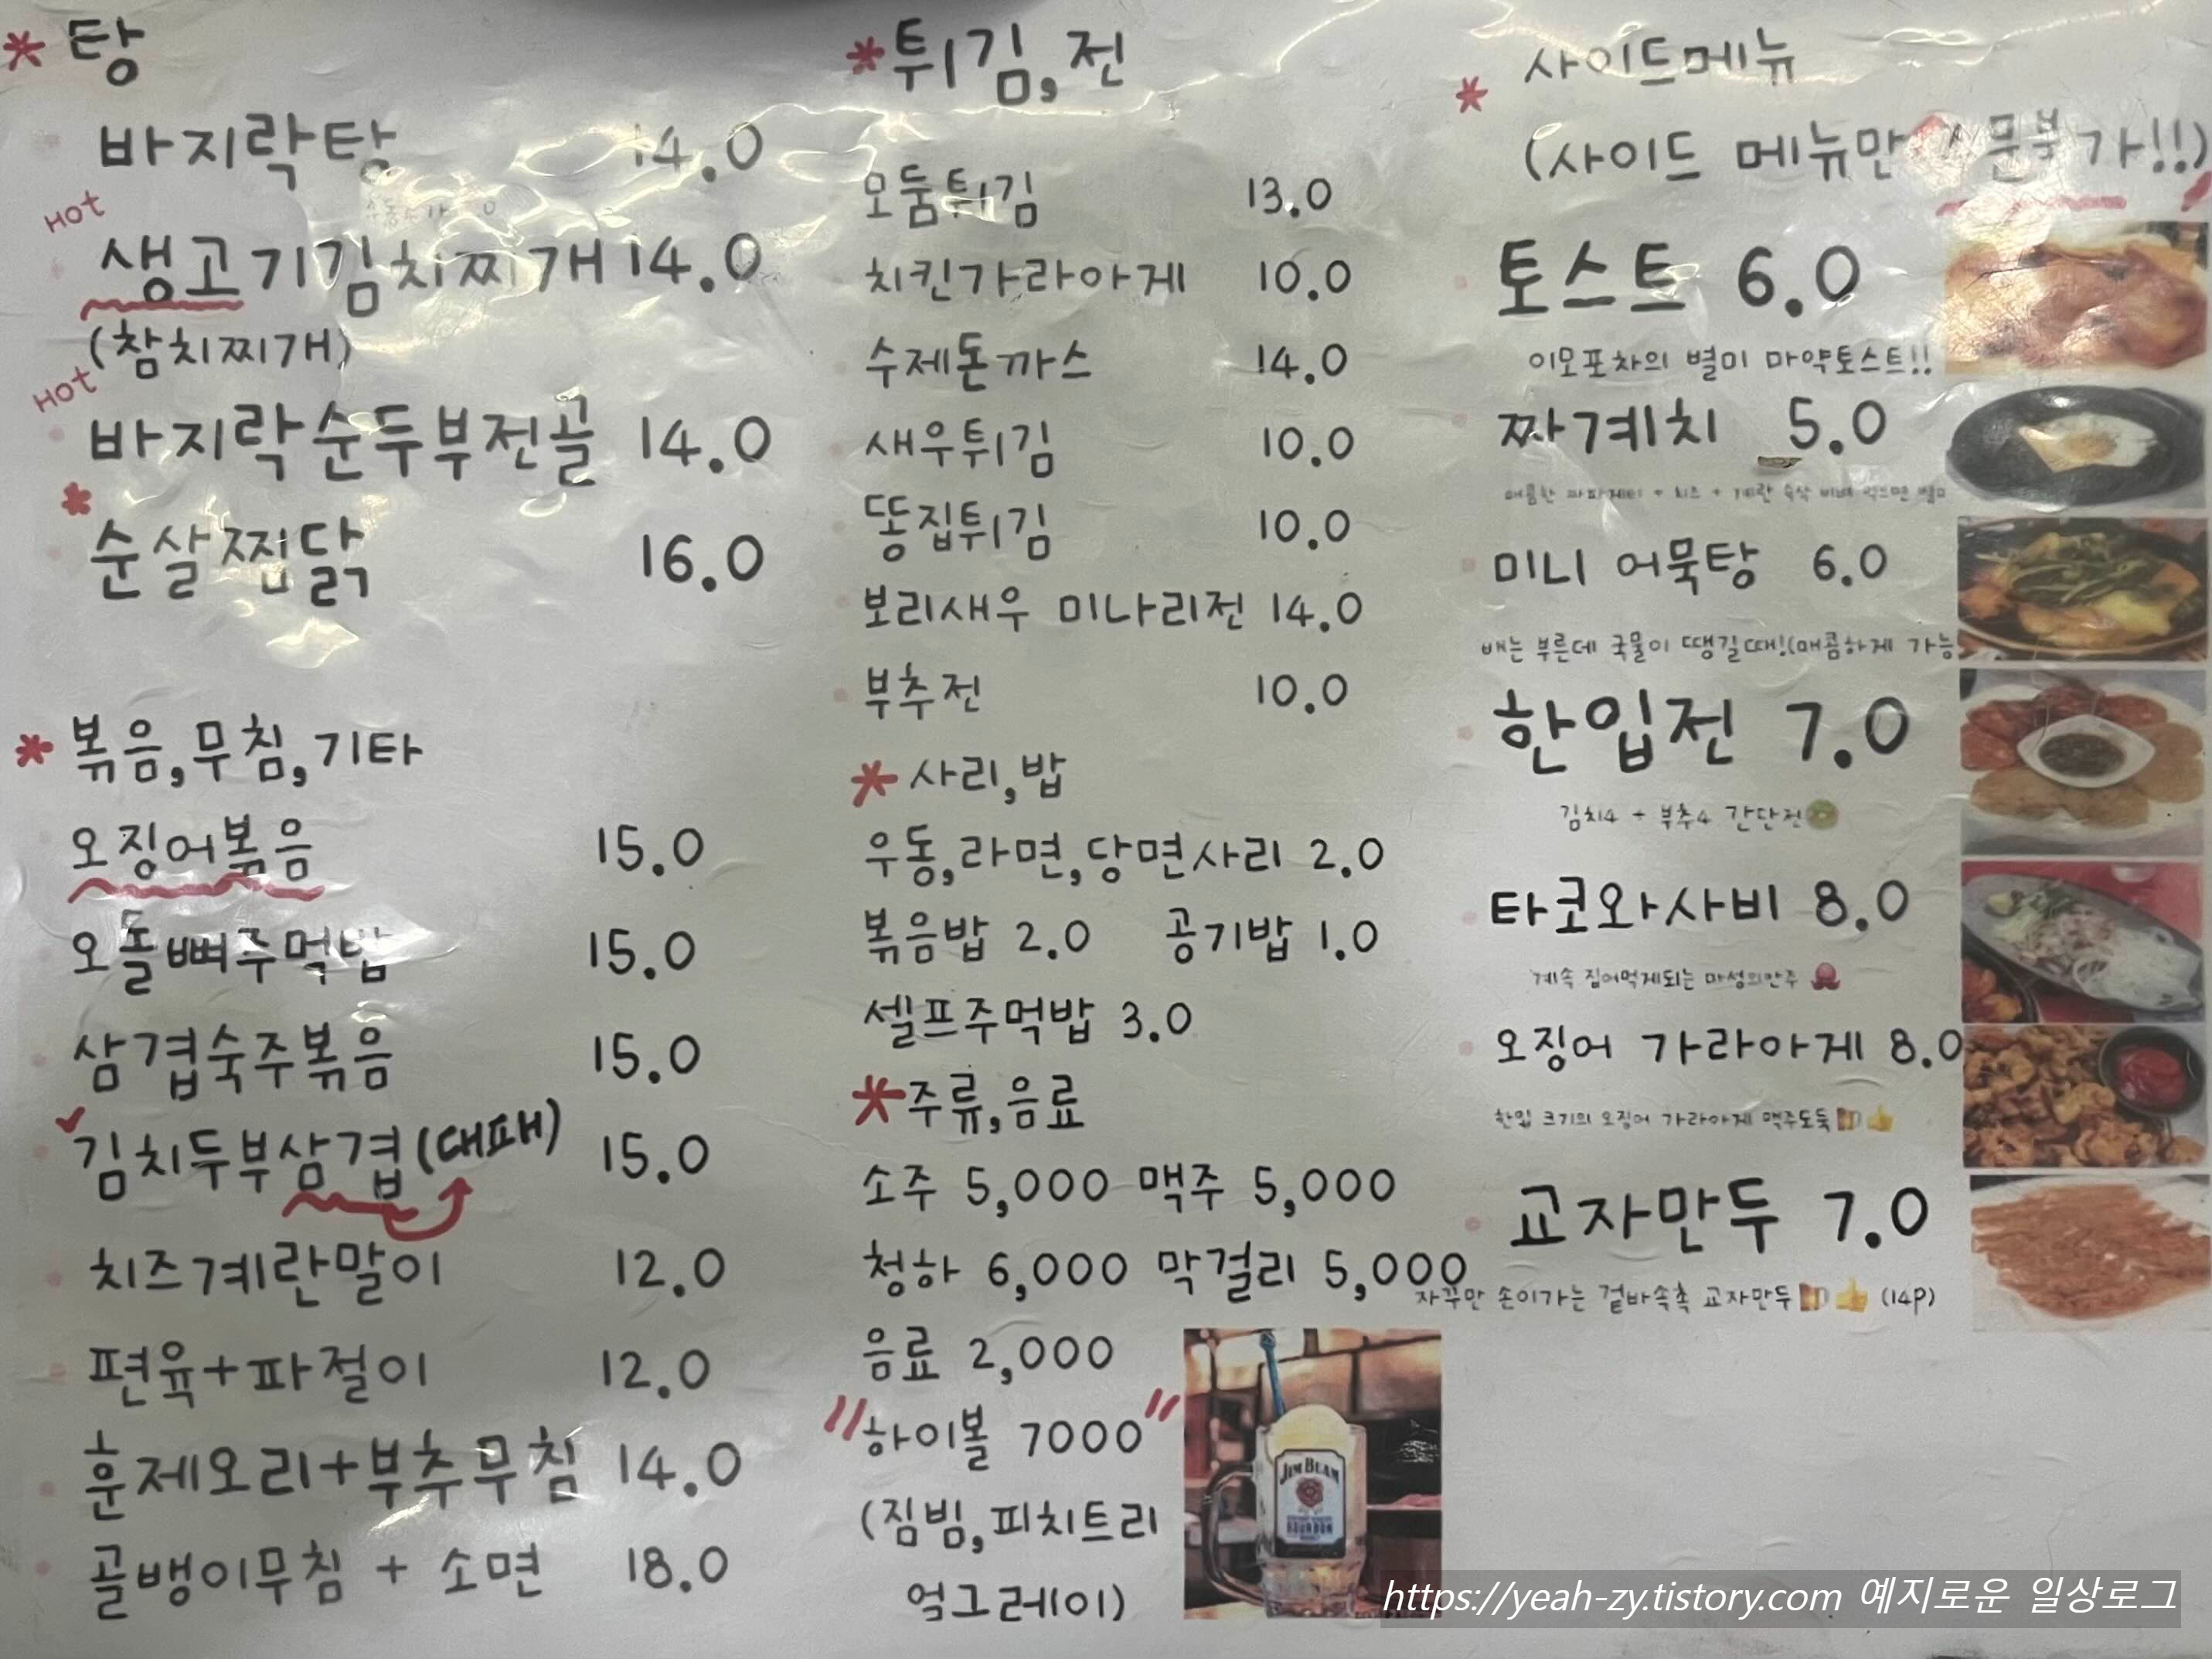 * 탕
바지락탕 14.0
HOT
생고기김치찌개 14.0
(참치찌개)
HOT
바지락순두부전골 14.0
* 순살찜닭 16.0
* 볶음,무침,기타
오징어볶음 15.0
오돌뼈주먹밥 15.0
삼겹숙주볶음 15.0
김치두부삼겹(대패) 15.0
치즈계란말이 12.0
편육+파절이 12.0
훈제오리+부추무침 14.0
골뱅이무침 + 소면 18.0
* 튀김,전
모둠튀김 13.0
치킨가라아게 10.0
수제돈까스 14.0
새우튀김 10.0
똥집튀김 10.0
보리새우 미나리전 14.0
부추전 10.0
* 사리,밥
우동,라면,당면사리 2.0
볶음밥 2.0 공기밥 1.0
셀프주먹밥 3.0
* 주류,음료
소주 5,000 맥주 5,000
청하 6,000 막걸리 5,000
음료 2,000
"하이볼 7000"
(짐빔,피치트리
얼그레이)
JIM BEAM
BOURBON
* 사이드메뉴
(사이드 메뉴만 주문불가!!)
토스트 6.0
이모포차의 별미 마약토스트!!
짜계치 5.0
매콤한 짜파게티 + 치즈 + 계란 슥삭 비벼 먹으면 별미
미니 어묵탕 6.0
배는 부른데 국물이 땡길때!(매콤하게 가능
한입전 7.0
김치4 + 부추4 간단전
타코와사비 8.0
계속 집어먹게되는 마성의안주
오징어 가라아게 8.0
한입 크기의 오징어 가라아게 맥주도둑
교자만두 7.0
자꾸만 손이가는 겉바속촉 교자만두 (14P)
https://yeah-zy.tistory.com 예지로운 일상로그